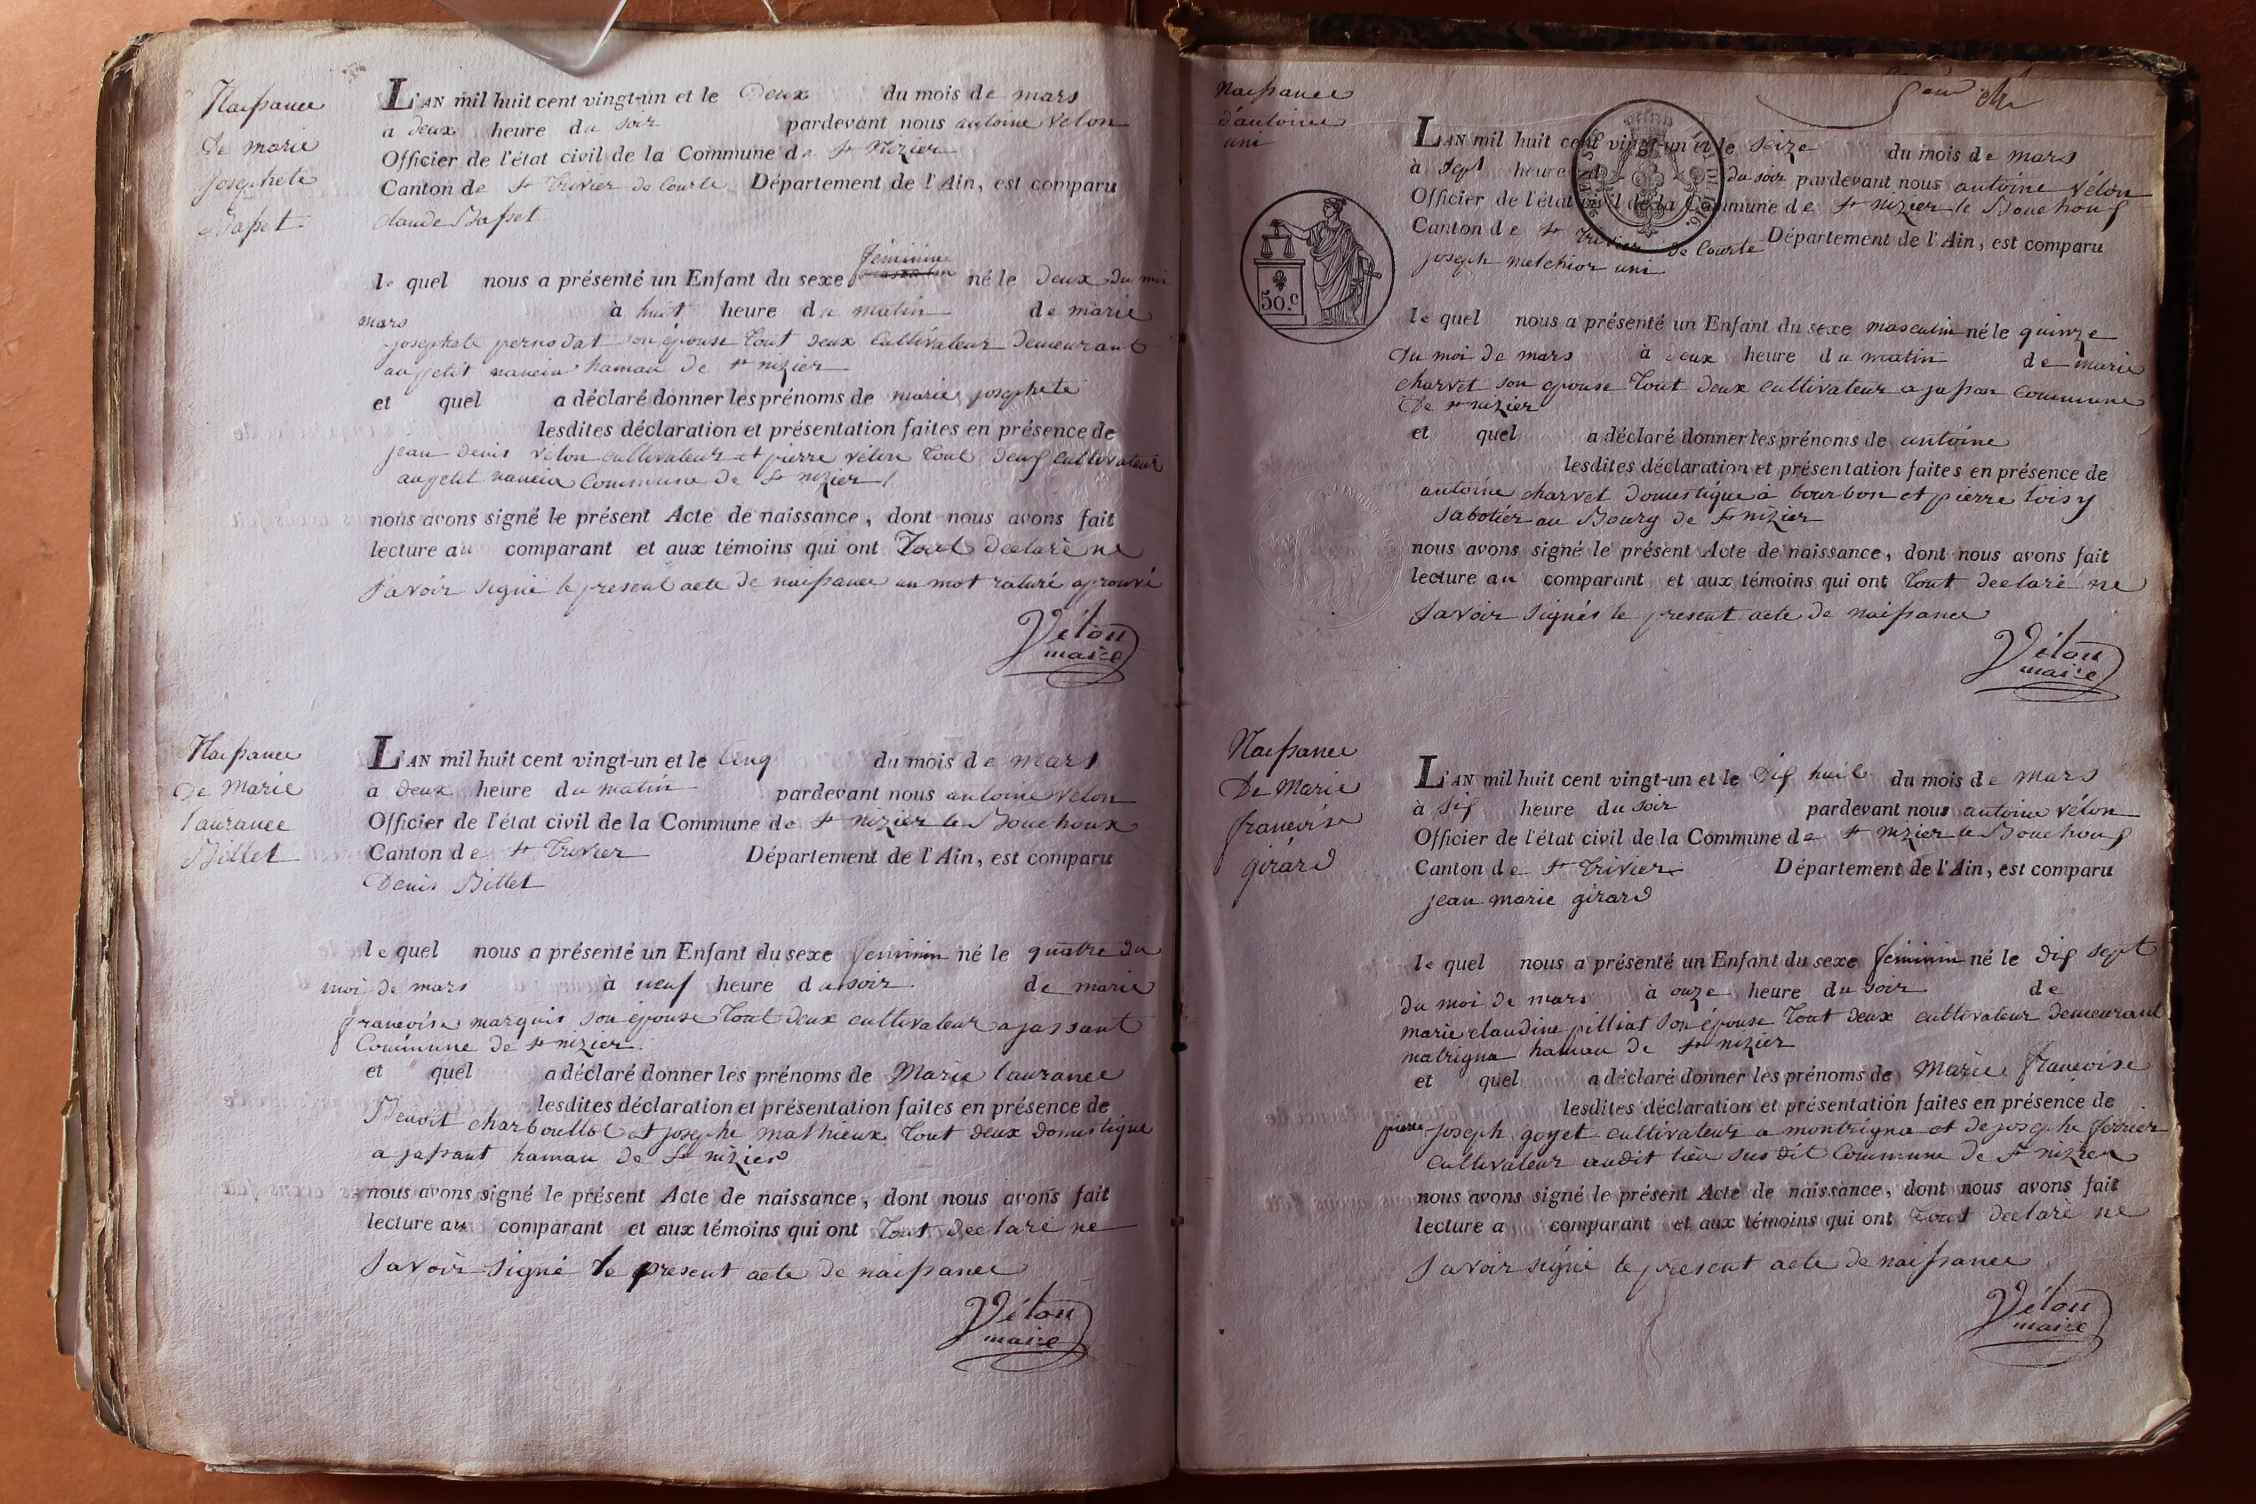 Naissance
De marie
josephete
Basset
L'AN mil huit cent vingt-un et le Deux du mois de mars
a deux heure du soir pardevant nous antoine Velon
Officier de l'état civil de la Commune de St Nizier
Canton de St Trivier de Courte Département de l'Ain, est comparu
claude Basset
le quel nous a présenté un Enfant du sexe féminin né le Deux du moi
mars à huit heure du matin de marie
josephete pernodat son épouse tout deux Cultivateur Demeurant
au petit nancin hamau de St nizier
et quel a déclaré donner les prénoms de marie josephete
lesdites déclaration et présentation faites en présence de
jean denis velon cultivateur et pierre velon tout deux cultivateur
au petit nancin Commune de St nizier
nous avons signé le présent Acte de naissance, dont nous avons fait
lecture au comparant et aux témoins qui ont Tout declaré ne
savoir signé le present acte de naissance un mot raturé aprouvé
Vélon
maire
Naissance
De Marie
laurance
Billet
L'AN mil huit cent vingt-un et le Cinq du mois de mars
a deux heure du matin pardevant nous antoine velon
Officier de l'état civil de la Commune de St nizier le Bouchoux
Canton de St Trivier Département de l'Ain, est comparu
Denis Billet
le quel nous a présenté un Enfant du sexe feminin né le quatre du
moi de mars à neuf heure du soir de marie
francoise marquis son épouse Tout deux cultivateur a jassant
Commune de St nizier
et quel a déclaré donner les prénoms de Marie laurance
lesdites déclaration et présentation faites en présence de
Benoit charboullot et josephe mathieux Tout deux domestique
a jassant hamau de St nizier
nous avons signé le présent Acte de naissance, dont nous avons fait
lecture au comparant et aux témoins qui ont Tout declaré ne
savoir signé le present acte de naissance
Vélon
maire
Naissance
d'antoine
uni
50.c
L'AN mil huit cent vingt-un et le seize du mois de mars
à sept heure du soir pardevant nous antoine vélon
Officier de l'état civil de la Commune de St nizier le Bouchoux
Canton de St Trivier de Courte Département de l'Ain, est comparu
joseph melchior uni
le quel nous a présenté un Enfant du sexe masculin né le quinze
du moi de mars à deux heure du matin de marie
charvet son epouse Tout deux cultivateur a jassan Commune
De St nizier
et quel a déclaré donner les prénoms de antoine
lesdites déclaration et présentation faites en présence de
antoine charvet domestique à bourbon et pierre loisy
sabotier au Bourg de St nizier
nous avons signé le présent Acte de naissance, dont nous avons fait
lecture au comparant et aux témoins qui ont Tout declaré ne
savoir signés le present acte de naissance
Vélon
maire
Naissance
De Marie
francoise
girard
L'AN mil huit cent vingt-un et le Dix huit du mois de mars
à six heure du soir pardevant nous antoine vélon
Officier de l'état civil de la Commune de St nizier le Bouchoux
Canton de St Trivier Département de l'Ain, est comparu
jean marie girard
le quel nous a présenté un Enfant du sexe féminin né le dix sept
du moi de mars à onze heure du soir de
marie claudine pilliat son épouse Tout deux cultivateur demeurant
matrigna hamau de St nizier
et quel a déclaré donner les prénoms de Marie francoise
lesdites déclaration et présentation faites en présence de
pierre joseph goyet cultivateur a montrigna et de josephe ferrier
cultivateur audit lieu sus dit Commune de St nizier
nous avons signé le présent Acte de naissance, dont nous avons fait
lecture a comparant et aux témoins qui ont Tout declaré ne
savoir signé le present acte de naissance
Vélon
maire